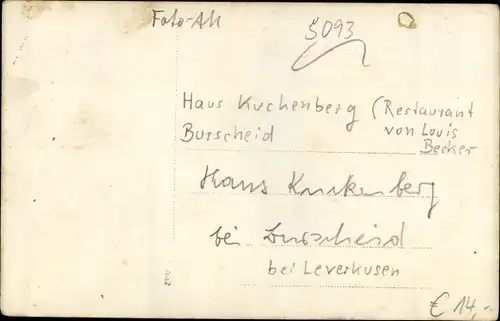 Foto-AK
5093
Haus Kuckenberg (Restaurant
Burscheid von Louis
Becker
Haus Kuckenberg
bei Burscheid
bei Leverkusen
€ 14,-